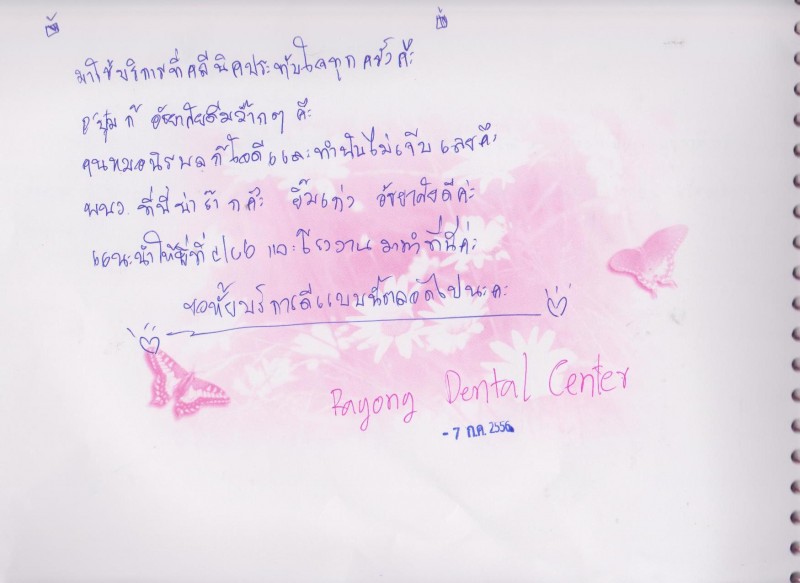 มาใช้บริการที่คลีนิคประทับใจทุกครั้งค๊ะ
อัธยาศัยดีมว๊ากๆ ค๊ะ
คุณหมอนิรมลก็ใจดีและทำฟันไม่เจ็บเลยค๊ะ
พนง. ที่นี่น่าร๊ากค๊ะ ยิ๊มเก่ง อัธยาศัยดีค่ะ
แนะนำให้พี่ที่ club และโรงงาน มาทำที่นี่ค่ะ
ขอหั้ยบริการดีแบบนี้ตลอดไปนะคะ
Rayong Dental Center
- 7 ก.ค. 2556